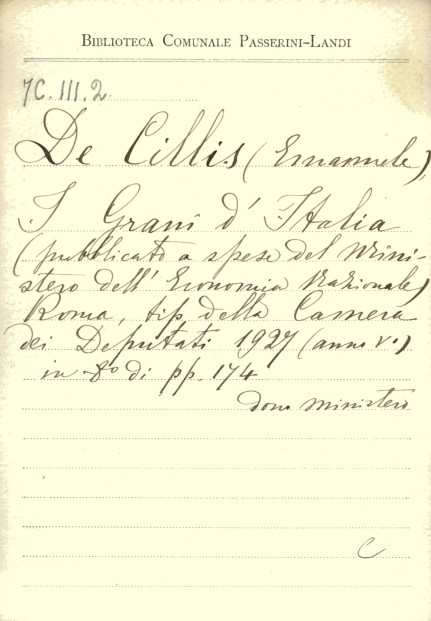 BIBLIOTECA COMUNALE PASSERINI-LANDI
7C.III.2.
De Cillis (Emanuele)
I Grani d'Italia
(pubblicato a spese del Mini-
stero dell'Economia Nazionale)
Roma, tip. della Camera
dei Deputati 1927 (anno V.)
in 8º di pp. 174
dono Ministero
C